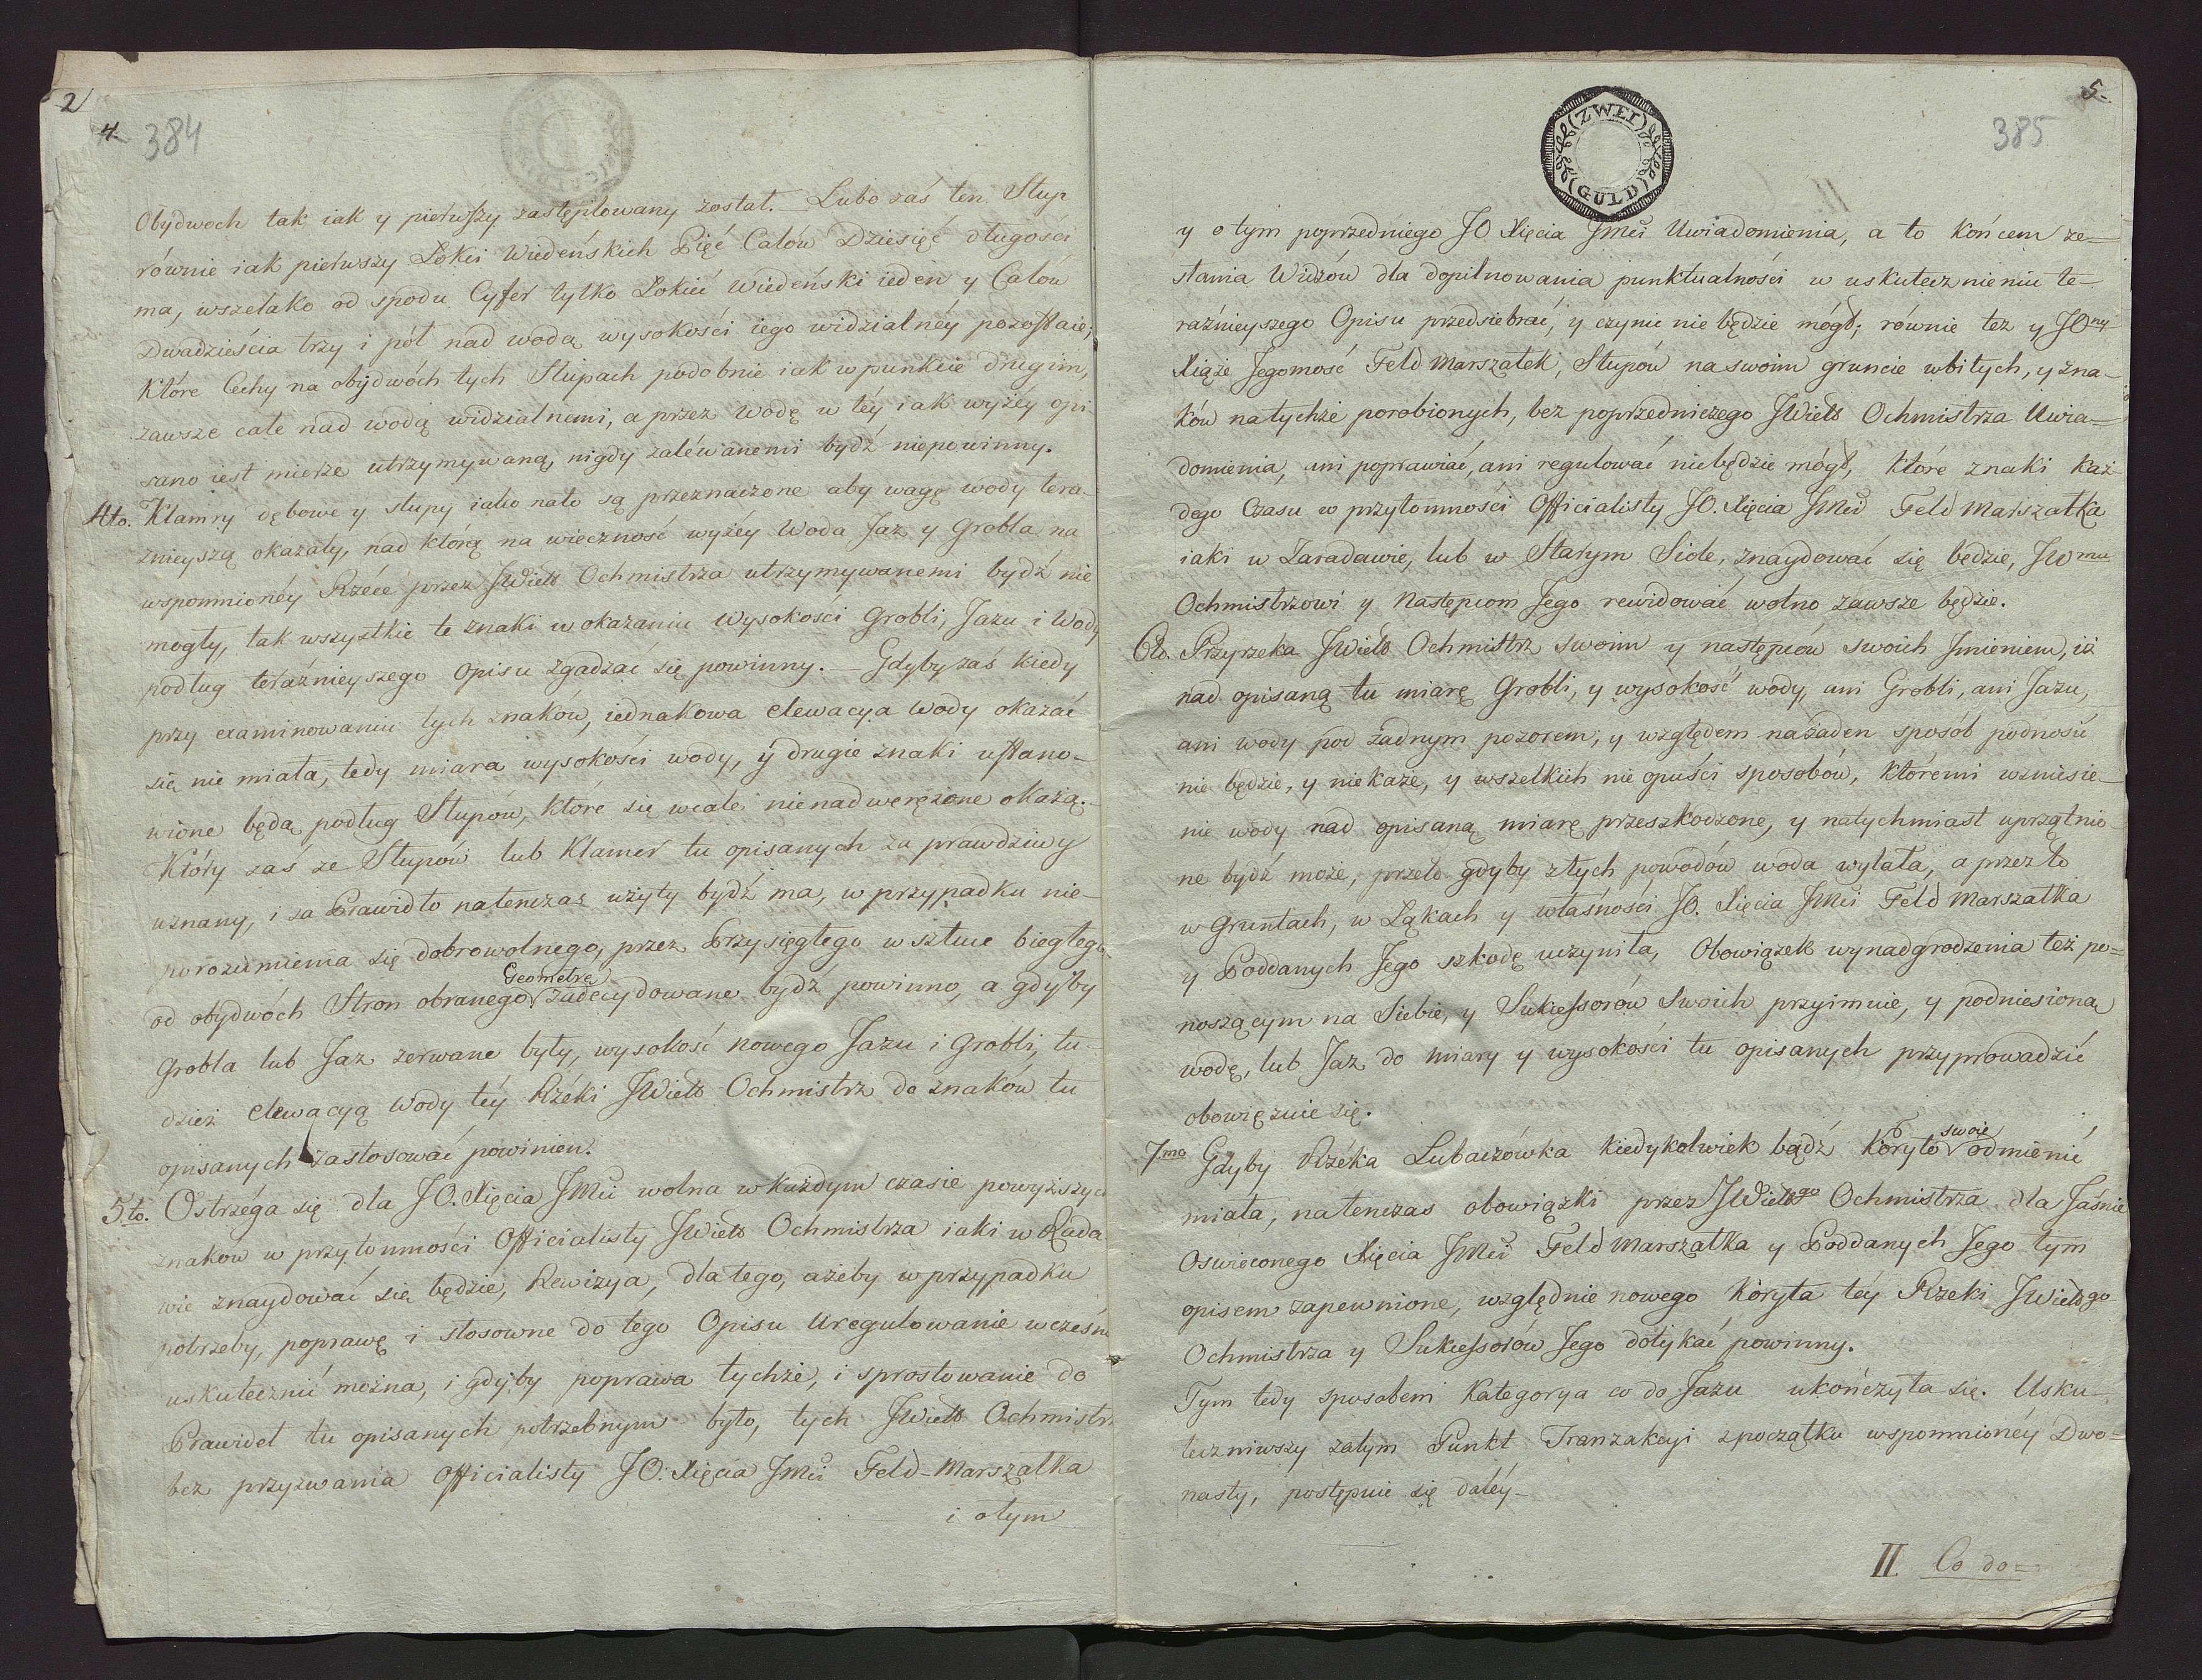 2
4.
384
Obydwoch tak iak y pierwszy zastęplowany został. — Lubo zaś ten Słup
równie iak pierwszy Łokci Wiedeńskich Pięć Calów Dziesięć długości
ma, wszelako od spodu Cyfer tylko Łokieć Wiedeński ieden y Calów
Dwadzieścia trzy i pół nad wodą wysokości iego widzialnéy pozostaie;
Które Cechy na obydwóch tych Słupach podobnie iak w punkcie drugim,
zawsze całe nad wodą widzialnemi, a przez Wodę w téy iak wyżéy opi
sano iest mierze utrzymywaną, nigdy zaléwanemi bydź niepowinny.
4to. Klamry dębowe y słupy iako nato są przeznaczone aby wagę wody tera-
znieyszą okazały, nad którą na wieczność wyżéy Woda Jaz y Grobla na
wspomnionéy Rzéce przez JWielo Ochmistrza utrzymywanemi bydź nie
mogły, tak wszystkie te znaki w okazaniu Wysokości Grobli, Jazu i Wody
podług teraźnieyszego Opisu zgadzać się powinny. — Gdyby zaś kiedy
przy examinowaniu tych znaków, iednakowa elewacya Wody okazać
się nie miała, tedy miara wysokości wody, y drugie znaki ustano-
wione będą podług Słupów, które się wcale nienadweręzone okażą.
Który zaś ze Słupów lub Klamer tu opisanych za prawdziwy
uznany, i za Prawidło natenczas użyty bydź ma, w przypadku nie-
porozumienia się dobrowolnego, przez Przysięgłego w sztuce biegłego
od obydwóch Stron obranego Geometrę zadecydowane bydź powinno, a gdyby
Grobla lub Jaz zerwane były, wysokość nowego Jazu i Grobli, tu-
dzież elewacyą Wody téy Rzéki JWielo Ochmistrz do znaków tu
opisanych zastosować powinien.
5to. Ostrzéga się dla JO. Xięcia JMci wolna w każdym czasie powyższych
znaków w przytomności Officialisty JWielo Ochmistrza iaki w Rada
wie znaydować się będzie, Rewizya, dlatego, ażeby w przypadku
potrzeby, poprawę i stosowne do tego Opisu Uregulowanie wcześn
uskutecznić można, i gdyby poprawa tychże, i sprostowanie do
Prawideł tu opisanych potrzebnym było, tych JWielo Ochmistrz
bez przyzwania Officialisty JO. Xięcia JMci Feld-Marszałka
i otym
ZWEI
GULD
5.
385
y o tym poprzedniego JO Xięcia JMci Uwiadomienia, a to końcem ze-
słania Widzów dla dopilnowania punktualności w uskutecznieniu te-
raźnieyszego Opisu przedsiebrać, y czynić nie będzie mógł; równie też y JOny
Xiąże Jegomość Feld Marszałek, Słupów na swoim gruncie wbitych, y zna-
ków natychże porobionych, bez poprzedniczego JWielo Ochmistrza Uwia-
domienia, ani poprawiać, ani regulować niebędzie mógł, które znaki każ-
dego Czasu w przytomności Officialisty JO. Xięcia JMci Feld Marszałka
iaki w Zaradawie, lub w Starym Siole, znaydować się będzie, JWmu
Ochmistrzowi y Następcom Jego rewidować wolno zawsze będzie.
6to. Przyrzeka JWielo Ochmistrz swoim y następców swoich Jmieniem, iż
nad opisaną tu miarę Grobli, y wysokość wody, ani Grobli, ani Jazu,
ani wody pod żadnym pozorem, y względem nażaden sposób podnosić
nie będzie, y niekaże, y wszelkich nie opuści sposobów, któremi wzniesie-
nie wody nad opisaną miarę przeszkodzone, y natychmiast uprzątnio-
ne bydź może, przeto gdyby ztych powodów woda wylała, a przez to
w Gruntach, w Łąkach y własności JO. Xięcia JMci Feld Marszałka
y Poddanych Jego szkodę uczyniła, Obowiązek wynadgrodzenia też po-
noszącym na Siebie, y Sukcessorów Swoich przyimuie, y podniesioną
wodę, lub Jaz do miary y wysokości tu opisanych przyprowadzić
obowięzuie się.
7mo Gdyby Rzéka Lubaczówka kiedykolwiek bądź Koryto swoie odmienić
miała, natenczas obowiązki przez JWielogo Ochmistrza dla Jaśnie
Oswieconego Xięcia JMci Feld Marszałka y Poddanych Jego tym
opisem zapewnione, względnie nowego Koryta téy Rzeki JWielogo
Ochmistrza y Sukcessorów Jego dotykać powinny.
Tym tedy sposobem Kategorya co do Jazu ukończyła się. Usku-
teczniwszy zatym Punkt Tranzakcyi zpoczątku wspomnionéy Dwo-
nasty, postępuie się daléy —
II Co do=